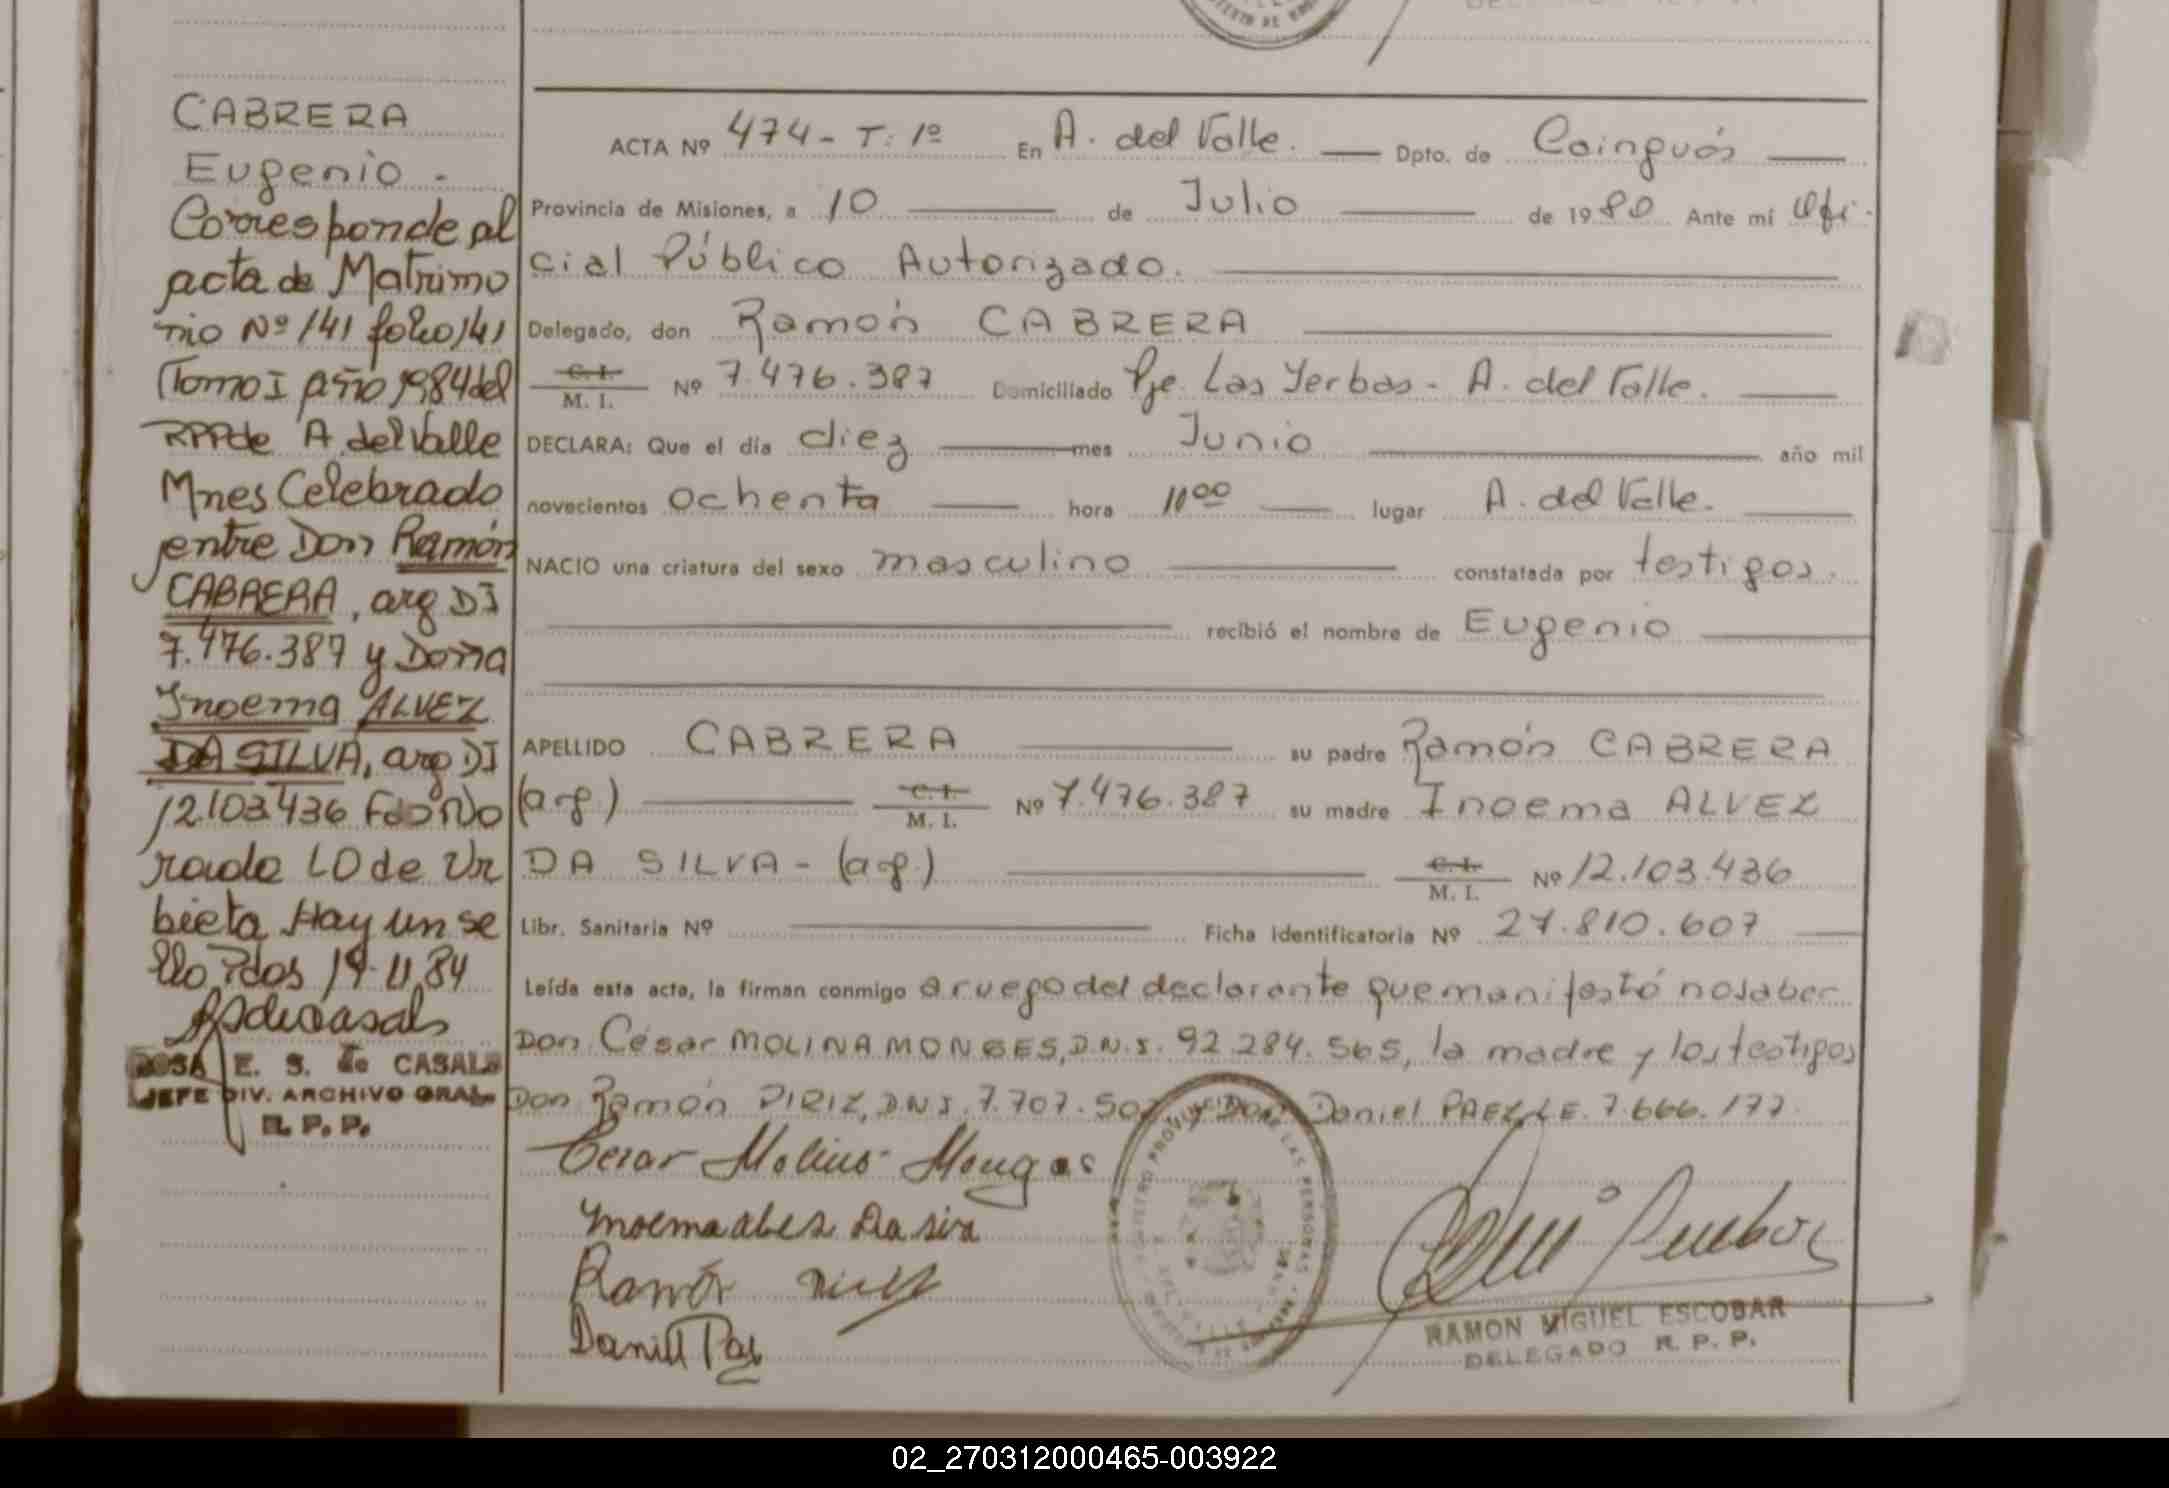 CABRERA
Eugenio -
Corresponde al
acta de Matrimo
nio Nº 141 folio 141
Tomo I año 1984 del
RPP de A. del Valle
Mnes Celebrado
entre Don Ramón
CABRERA, arg DI
7.476.387 y Doña
Inoema ALVEZ
DA SILVA, arg DI
12.103.436 Fdo
rada LO de Ur
bieta Hay un se
llo Pdos 19.11.84
ROSA E. S. de CASALS
JEFE DIV. ARCHIVO GRAL.
R. P. P.
ACTA Nº 474 - T: 1º En A. del Valle. Dpto. de Cainguás
Provincia de Misiones, a 10 de Julio de 1980 Ante mí Ofi-
cial Público Autorizado.
Delegado, don Ramón CABRERA
C. I.
M. I. Nº 7.476.387 Domiciliado Pje. Las Yerbas - A. del Valle.
DECLARA: Que el día diez mes Junio año mil
novecientos ochenta hora 11 00 lugar A. del Valle.
NACIO una criatura del sexo masculino constatada por testigos.
recibió el nombre de Eugenio
APELLIDO CABRERA su padre Ramón CABRERA
(arg.) C. I.
M. I. Nº 7.476.387 su madre Inoema ALVEZ
DA SILVA - (arg.) C. I.
M. I. Nº 12.103.436
Libr. Sanitaria Nº Ficha Identificatoria Nº 27.810.607
Leída esta acta, la firman conmigo a ruego del declarante que manifestó no saber
Don César MOLINA MONGES, D.N.I. 92.284.565, la madre y los testigos
Don Ramón PIRIZ, D.N.I. 7.707.50 y Don Daniel PAEZ L.E. 7.666.177.
Cesar Molina Monges
Inoema albes Da silva
Ramón
Daniel Paz
REGISTRO PROVINCIAL DE LAS PERSONAS
RAMON MIGUEL ESCOBAR
DELEGADO R. P. P.
02_270312000465-003922